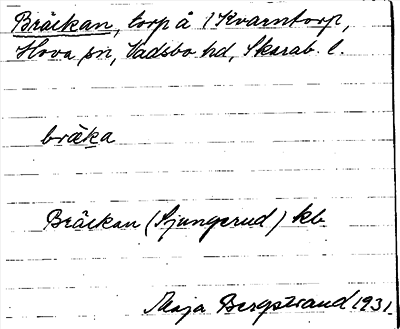 Bräckan, torp å 1 Kvarntorp,
Hova sn, Vadsbo hd, Skarab. l.
bräka
Bräckan (Ljungerud) kb
Maja Bergstrand 1931